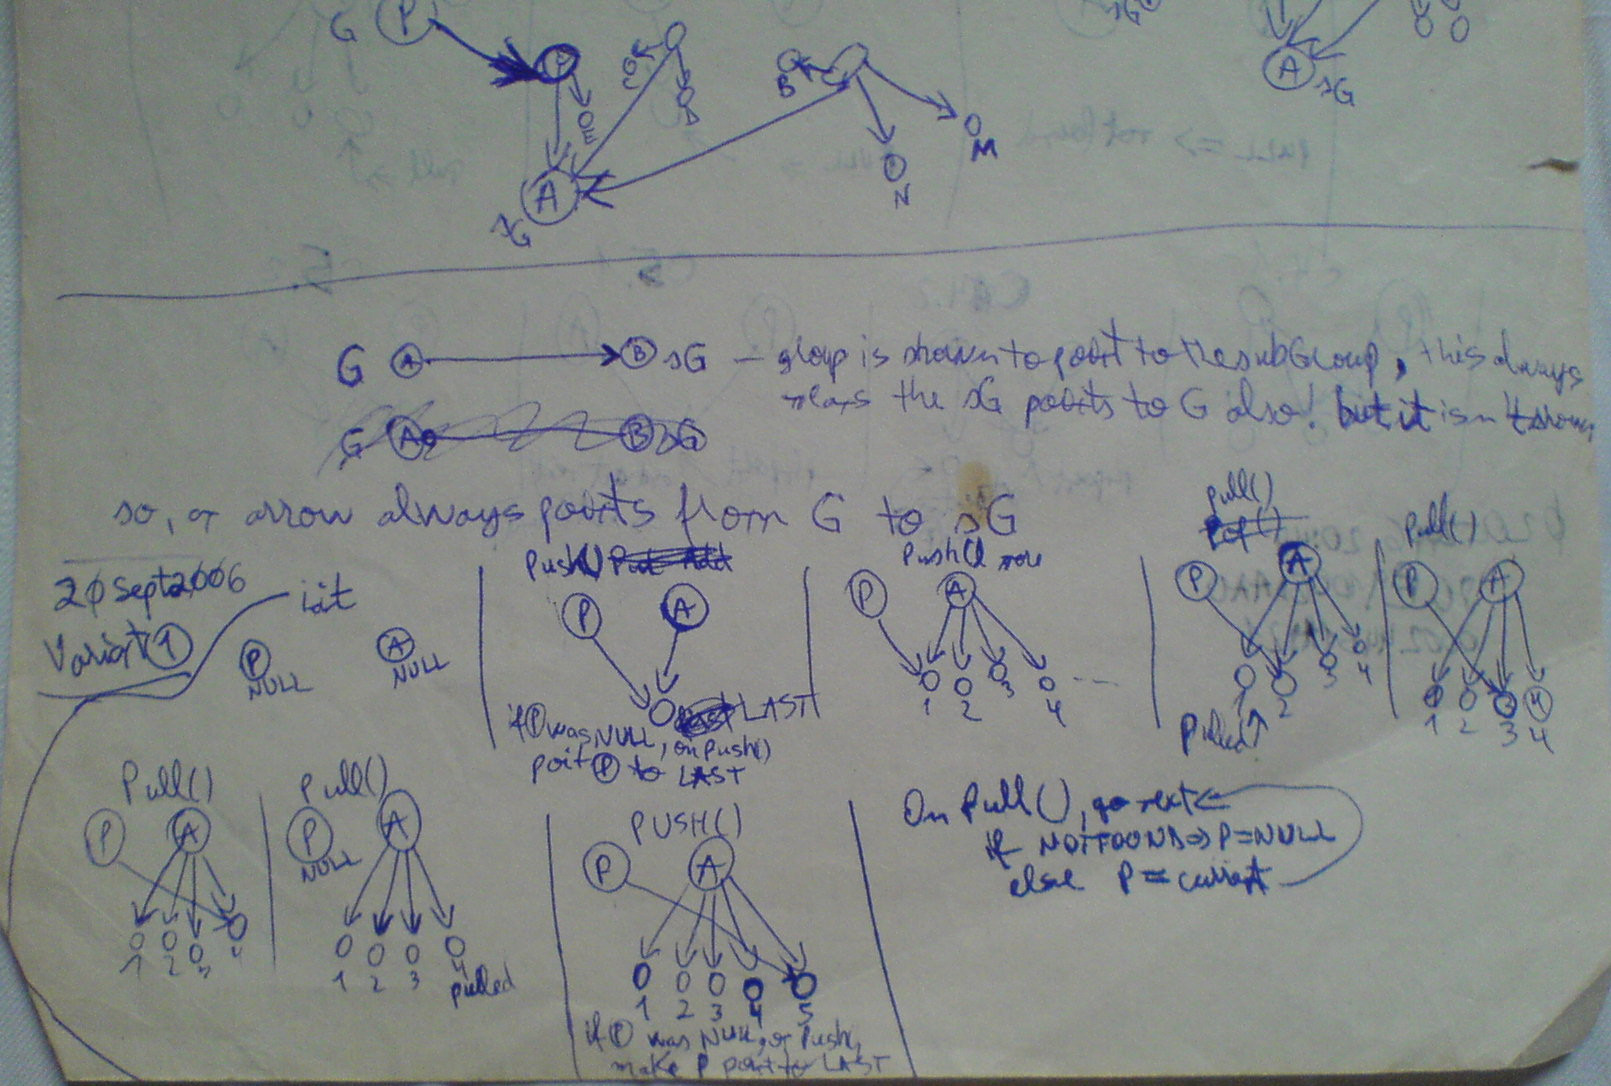 G P
E
C
D
B
M
N
A
sG
sG
A sG
G A B sG – group is shown to point to the subGroup, this always
means the sG points to G also! but it isn't shown
G A B sG
so, an arrow always points from G to sG
20 Sept 2006
Variant 1
init
P NULL
A NULL
Push()
P A
LAST
if P was NULL, on Push()
point P to LAST
Push()
P A
1 2 3 4 ...
Pull()
Pop()
P A
1 2 3 4
Pulled
Pull()
P A
1 2 3 4
Pull()
P A
1 2 3 4
Pull()
P NULL
A
1 2 3 4
pulled
PUSH()
P A
1 2 3 4 5
if P was NULL, on Push,
make P point to LAST
On Pull(), go next
if NOTFOUND => P=NULL
else P = current